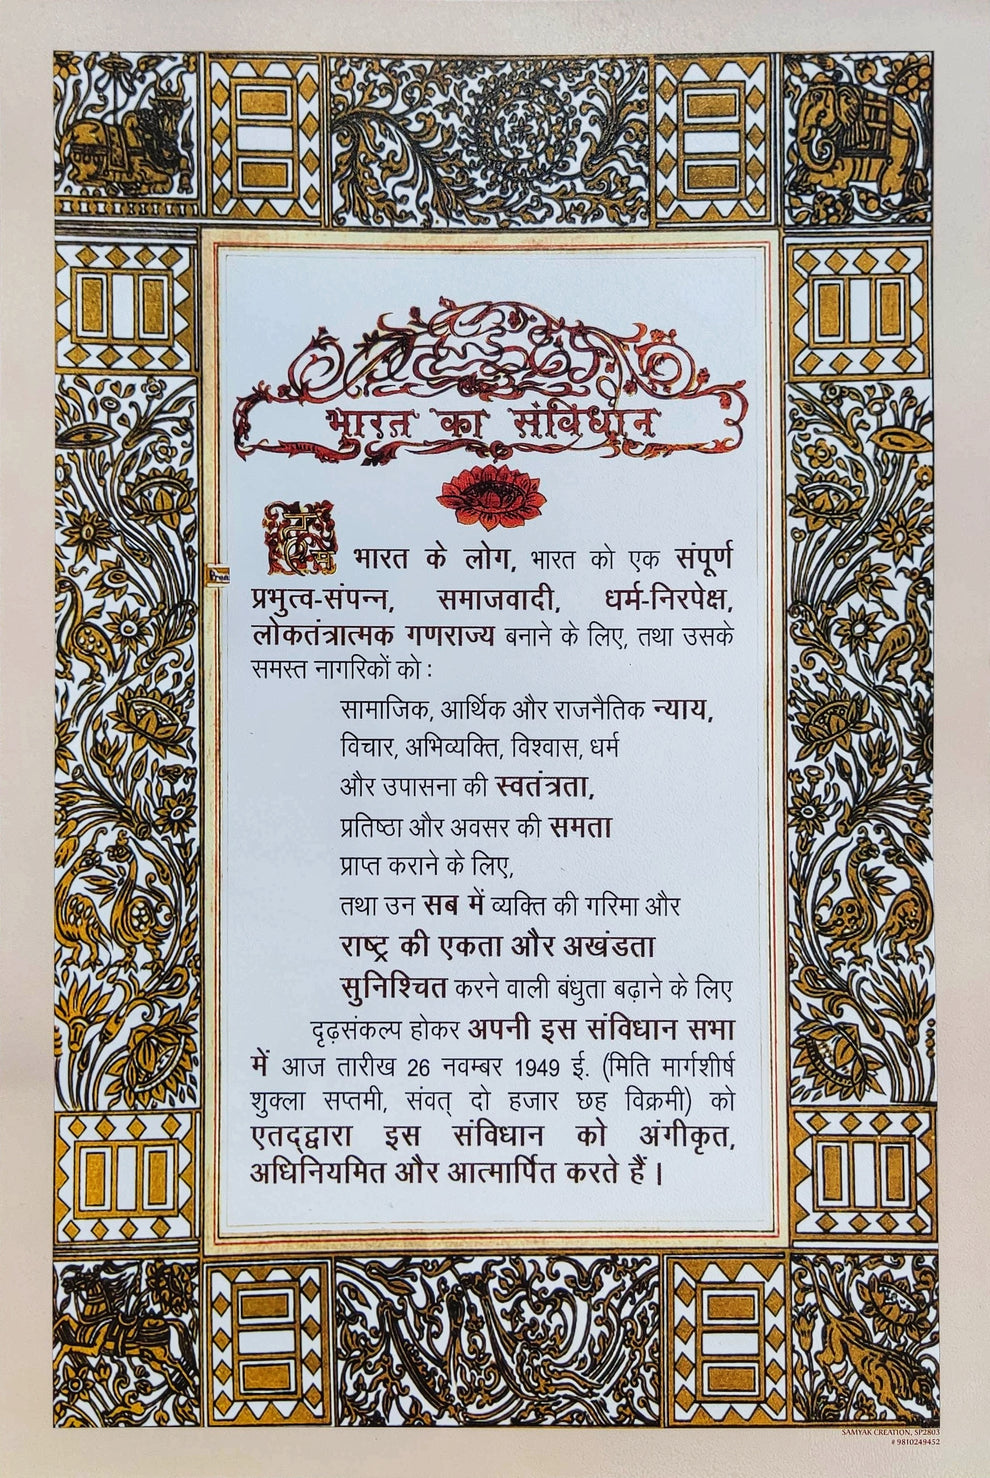 भारत का संविधान
हम भारत के लोग, भारत को एक संपूर्ण
प्रभुत्व-संपन्न, समाजवादी, धर्म-निरपेक्ष,
लोकतंत्रात्मक गणराज्य बनाने के लिए, तथा उसके
समस्त नागरिकों को :
सामाजिक, आर्थिक और राजनैतिक न्याय,
विचार, अभिव्यक्ति, विश्वास, धर्म
और उपासना की स्वतंत्रता,
प्रतिष्ठा और अवसर की समता
प्राप्त कराने के लिए,
तथा उन सब में व्यक्ति की गरिमा और
राष्ट्र की एकता और अखंडता
सुनिश्चित करने वाली बंधुता बढ़ाने के लिए
दृढ़संकल्प होकर अपनी इस संविधान सभा
में आज तारीख 26 नवम्बर 1949 ई. (मिति मार्गशीर्ष
शुक्ला सप्तमी, संवत् दो हजार छह विक्रमी) को
एतद्द्वारा इस संविधान को अंगीकृत,
अधिनियमित और आत्मार्पित करते हैं।
SAMYAK CREATION, SP2803
# 9810249452